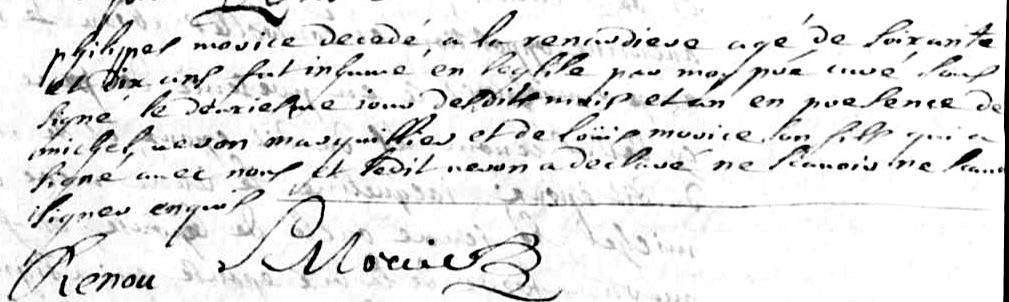 philippes morice decedé a la renardiere agé de soixante
et dix ans fut inhumé en leglise par moy curé sous
signé le deuxiesme iour desdits mois et an en presence de
michel veron marguillier et de loüis morice son fils qui a
signé avec nous et ledit veron a declaré ne scavoir ne
signer enquis
Renou Morice